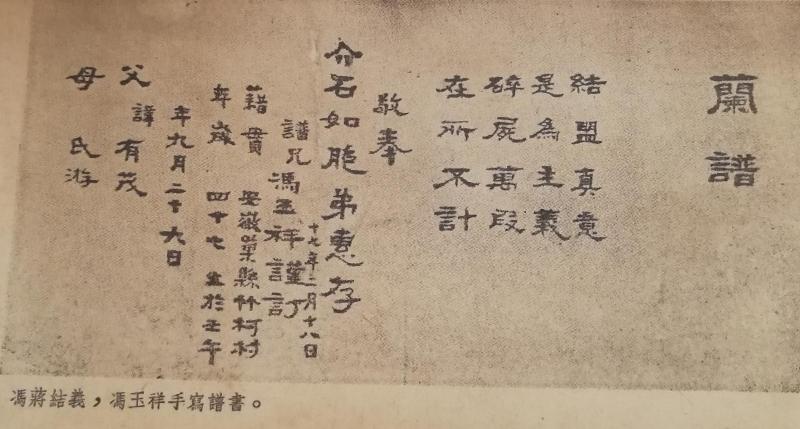 蘭譜
結盟真意
是為主義
碎屍萬段
在所不計
敬奉
介石如胞弟惠存
十七年二月十八日
譜兄 馮玉祥謹訂
籍貫 安徽巢縣竹柯村
年歲 四十七 生於壬午
年九月二十六日
父 諱有茂
母 氏游
馮蔣結義，馮玉祥手寫譜書。